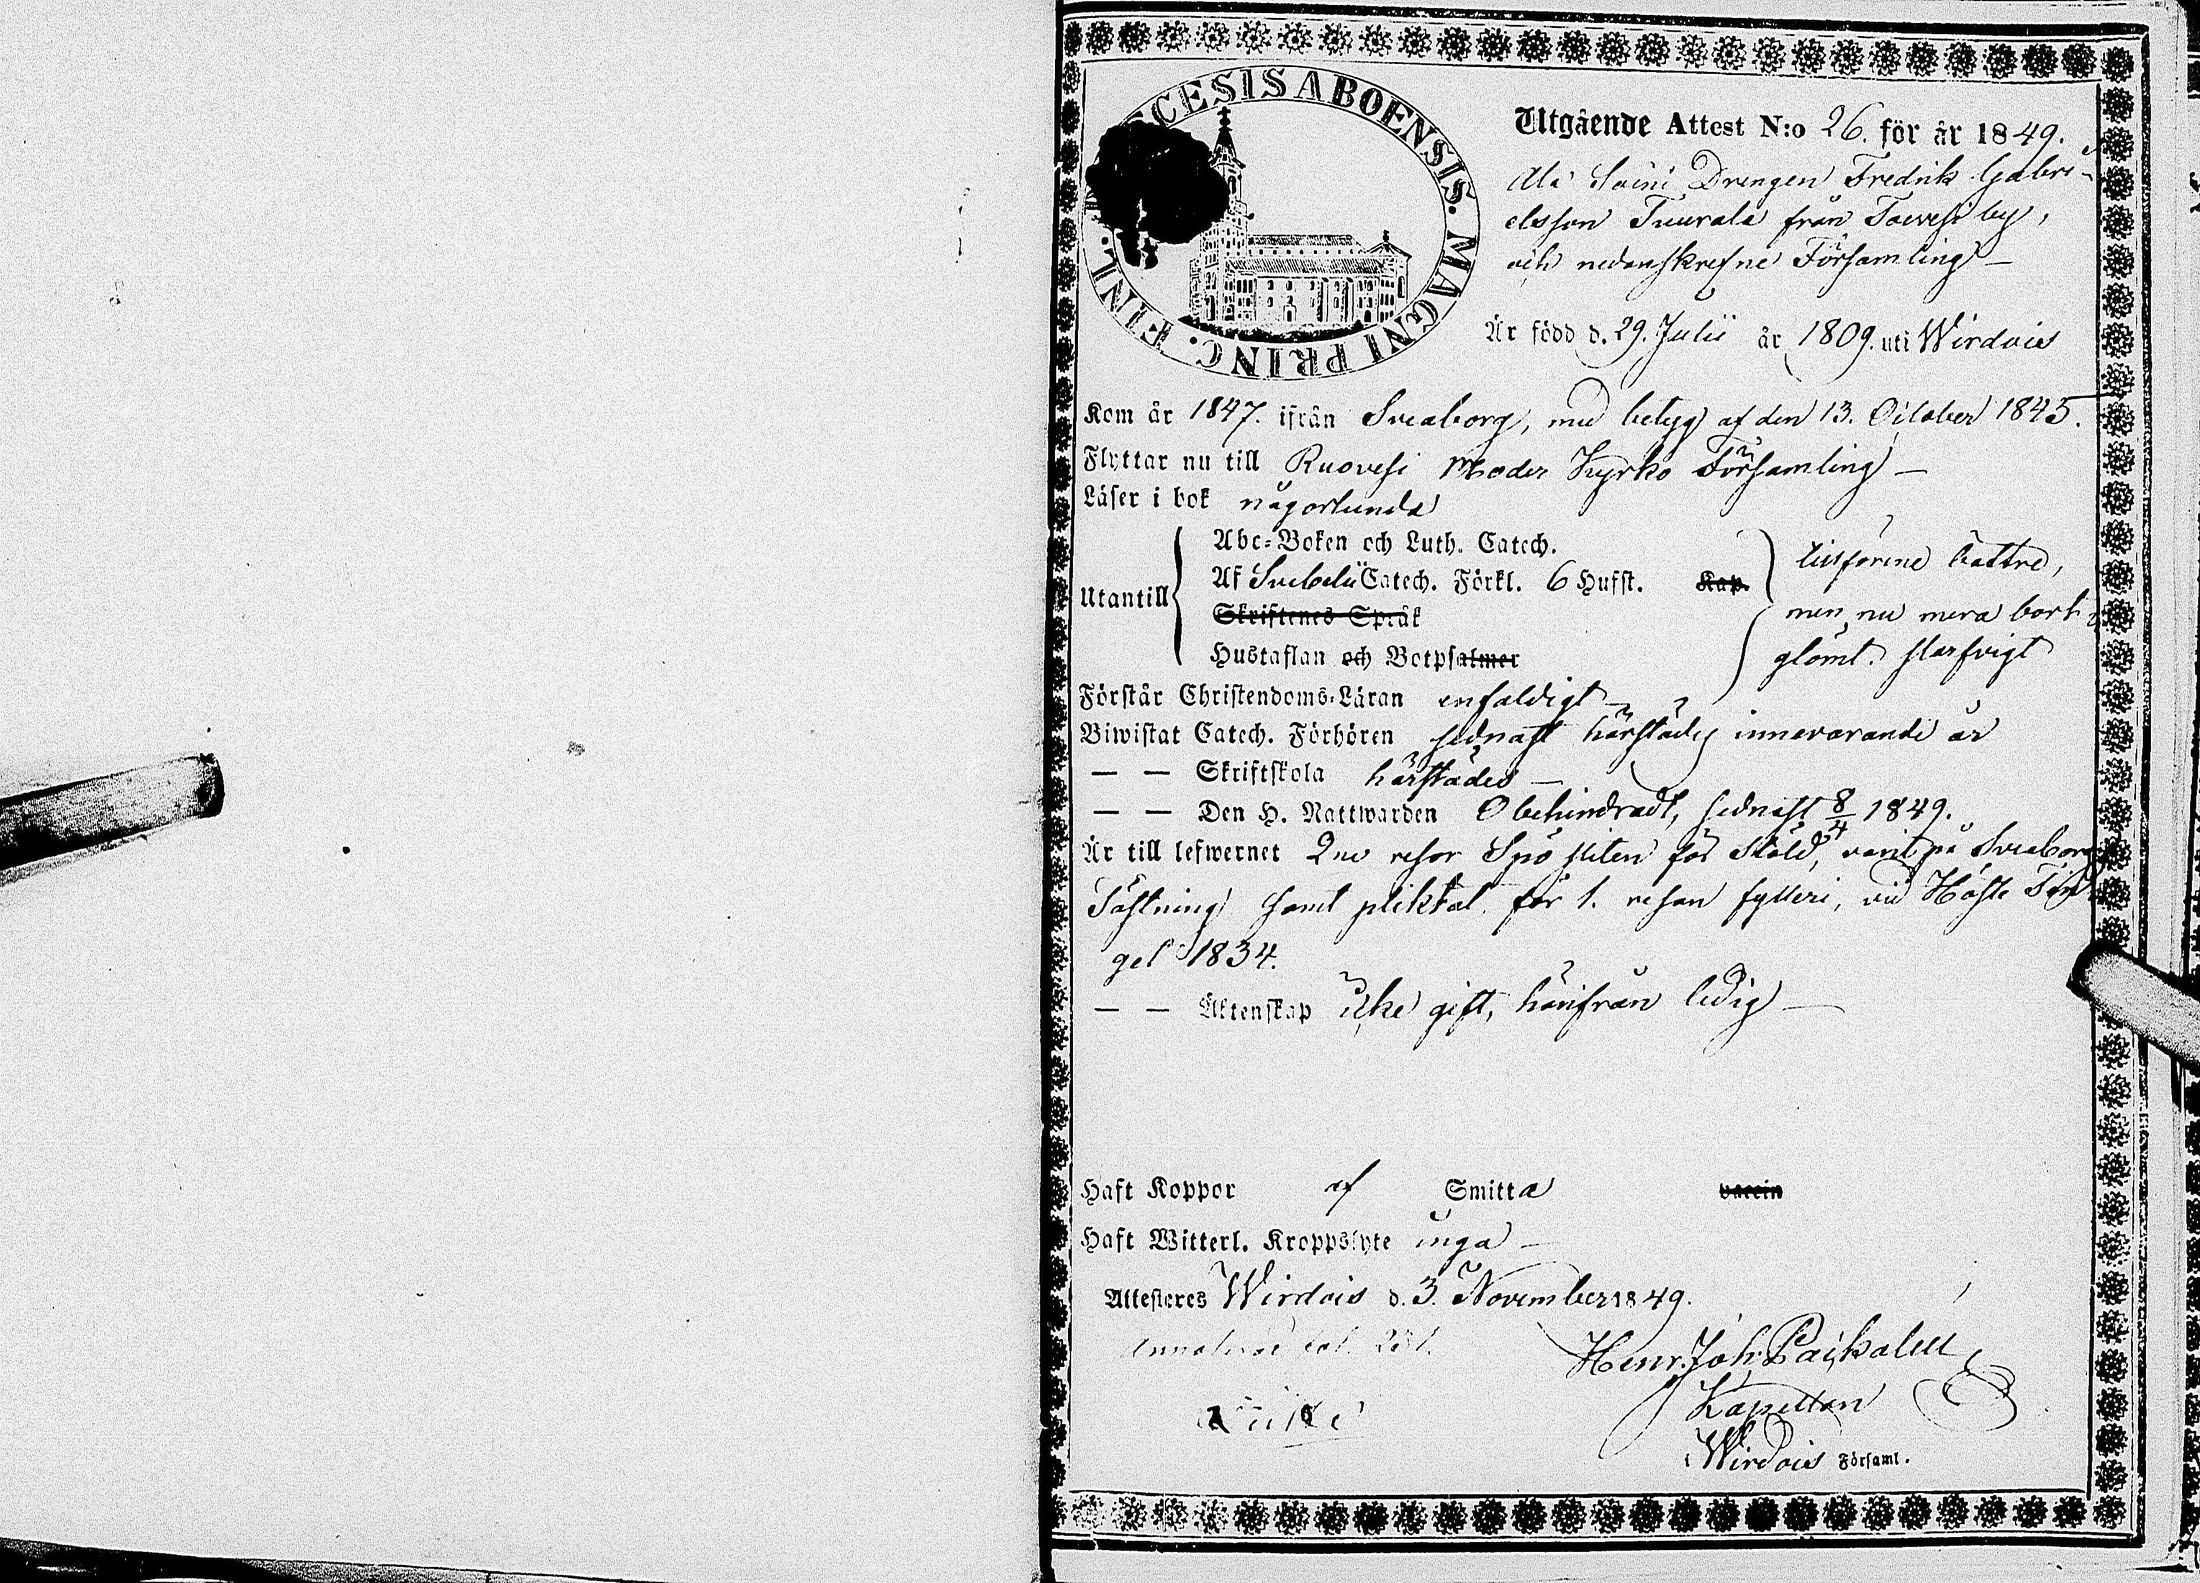 CESIS ABOENSIS. MAGNI PRINC. FINL.
Utgående Attest N:o 26. för år 1849.
Drengen Fredrik Gabri-
elsson Tuurala från by,
och nedanskrefne Församling
Är född d. 29. Julii år 1809. uti Wirdois
Kom år 1847. ifrån Sveaborg, med betyg af den 13. October 1845.
Flyttar nu till Ruovesi Moder Kyrko Församling —
Läser i bok någorlunda
Utantill
Abc-Boken och Luth. Catech.
Af Svebelii Catech. Förkl. 6 Hufst. Kap.
Skriftenes Språk
Hustaflan och Botpsalmer
tillförene bättre,
men nu mera bort-
glömt. slarfvigt
Förstår Christendoms-Läran enfaldigt —
Biwistat Catech. Förhören sednast härstädes innevarande år
— — Skriftskola härstädes —
— — Den H. Nattwarden Obehindradt, sednast 8/4 1849.
Är till lefwernet 2ne resor Spö sliten för stöld, varit på Sveaborgs
Fästning samt pliktat för 1. resan fylleri, vid Höste Tin
gel 1834.
— — Äktenskap icke gift, härifrån ledig —
Haft Koppor af Smitta vaccin
Haft Witterl. Kroppslyte inga —
Attesteres Wirdois d. 3. November 1849.
Henr. Joh.
Kapellan
Wirdois Församl.